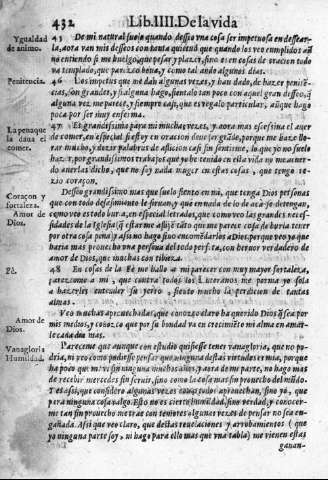 432 Lib.IIII. De la vida
Ygualdad
de animo.
45 De mi natural suelo quando desseo vna cosa ser impetuosa en dessear-
la, aora van mis desseos con tanta quietud que quando los veo cumplidos aũ
no entiendo si me huelgo, que pesar y plazer, sino es en cosas de oracion todo
va templado, que parezco boua, y como tal ando algunos dias.
Penitencia.
46 Los impetus que me dan algunas vezes, y han dado, de hazer peniten-
cias, son grandes, y si alguna hago, sientola tan poco con aquel gran desseo, q̃
alguna vez me parece, y siempre casi, que es regalo particular, aũque hago
poca por ser muy enferma.
La pena que
la daua el
comer.
47 Es grandissima para mi muchas vezes, y aora mas excessiua el auer
de comer, en especial si estoy en oracion deue ser grãde, porque me haze llo-
rar mucho, y dezir palabras de aflicion casi sin sentirme, lo que yo no suelo
hazer, por grandissimos trabajos que he tenido en esta vida no me acuer-
do auerlas dicho, que no soy nada muger en estas cosas, que tengo re-
zio coraçon.
Coraçon y
fortaleza.
Amor de
Dios.
Desseo grandissimo mas que suelo siento en mi, que tenga Dios personas
que con todo desasimiento le siruan, y que en nada de lo de acà se detengan,
como veo es todo burla, en especial letrados, que como veo las grandes neces-
sidades de la Iglesia (q̃ estas me afligẽ tãto que me parece cosa de burla tener
por otra cosa pena) y assi no hago sino encomendarlos a Dios, porque veo yo que
haria mas prouecho vna persona del todo perfeta, con heruor verdadero de
amor de Dios, que muchas con tibieza.
Fè.
48 En cosas de la Fè me hallo a mi parecer con muy mayor fortaleza,
pareceme a mi, que contra todos los Luteranos me pornia yo sola
a hazerles entender su yerro, siento mucho la perdicion de tantas
almas.
Amor de
Dios.
Veo muchas aprouechadas, que conozco claro ha querido Dios q̃ sea por
mis medios, y conozco que por su bondad va en crecimiẽto mi alma en amar-
le cada dia mas.
Vanagloria
Humildad.
Pareceme que aunque con estudio quisiesse tener vanagloria, que no po-
dria, ni veo como pudiesse pensar que ninguna destas virtudes es mia, porque
ha poco que me vi sin ninguna muchos años, y aora de mi parte, no hago mas
de recebir mercedes sin seruir, sino como la cosa mas sin prouecho del mũdo.
Y es assi, que considero algunas vezes como todas aprouechan, sino yo, que
para ninguna cosa valgo. Esto no es cierto humildad, sino verdad, y conocer-
me tan sin prouecho me trae con temores algunas vezes de pensar no sea en-
gañada. Assi que veo claro, que destas reuelaciones y arrobamientos (que
yo ninguna parte soy, ni hago para ello mas que vna tabla) me vienen estas
ganan-